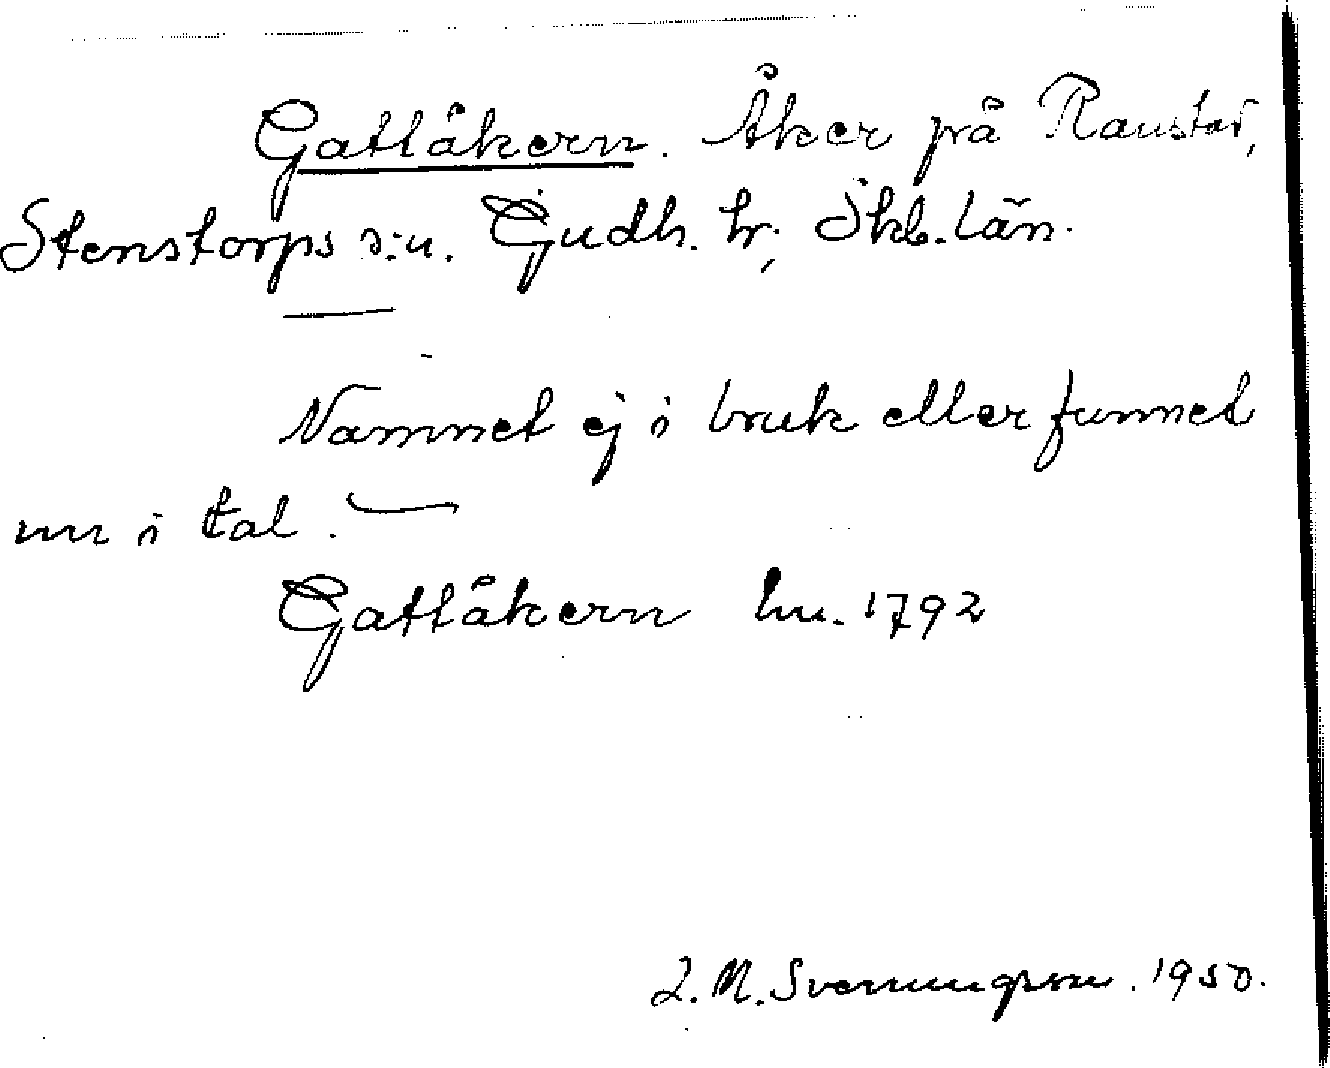 Gatlåkern. Åker på Ranstad,
Stenstorps s:n. Gudh. hr, Skb. län.
Namnet ej i bruk eller funnet
nu i tal.
Gatlåkern hu. 1792
I. M. Svenungsson. 1950.